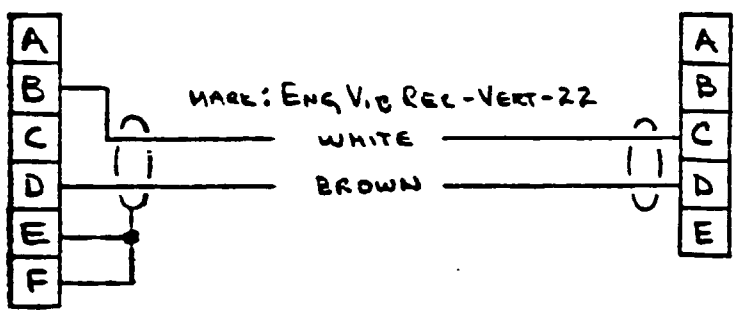 A
B
C
D
E
F
MARK: ENG VIB REC-VERT-22
WHITE
BROWN
A
B
C
D
E